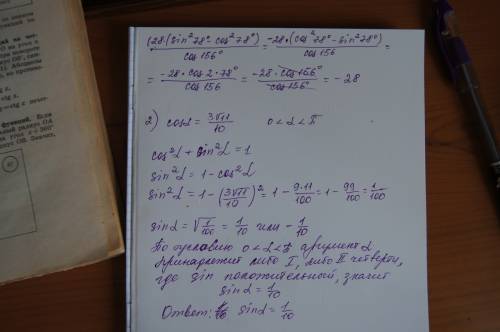 (28·(sin²78°-cos²78°))/cos156° = (-28·(cos²78°-sin²78°))/cos156 =
= (-28·cos2·78°)/cos156 = (-28·cos156°)/cos156° = -28
2) cosα = 3√11/10 0<α<π
cos²α + sin²α = 1
sin²α = 1 - cos²α
sin²α = 1 - (3√11/10)² = 1 - 9·11/100 = 1 - 99/100 = 1/100
sinα = √1/100 = 1/10 или - 1/10
По условию 0<α<π аргумент α
принадлежит либо I, либо II четверти,
где sin положительный, значит
sinα = 1/10
Ответ: sinα = 1/10